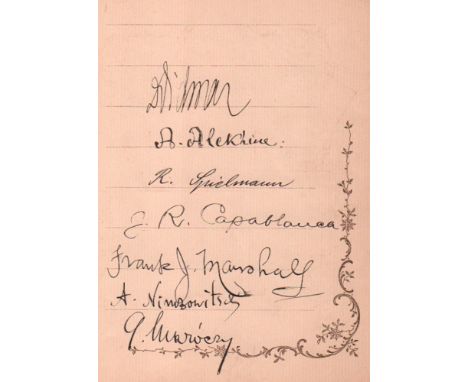 DVidmar
A. Alekhine.
R. Spielmann
J. R. Capablanca
Frank J. Marshall
A. Nimzowitsch
G. Maróczy